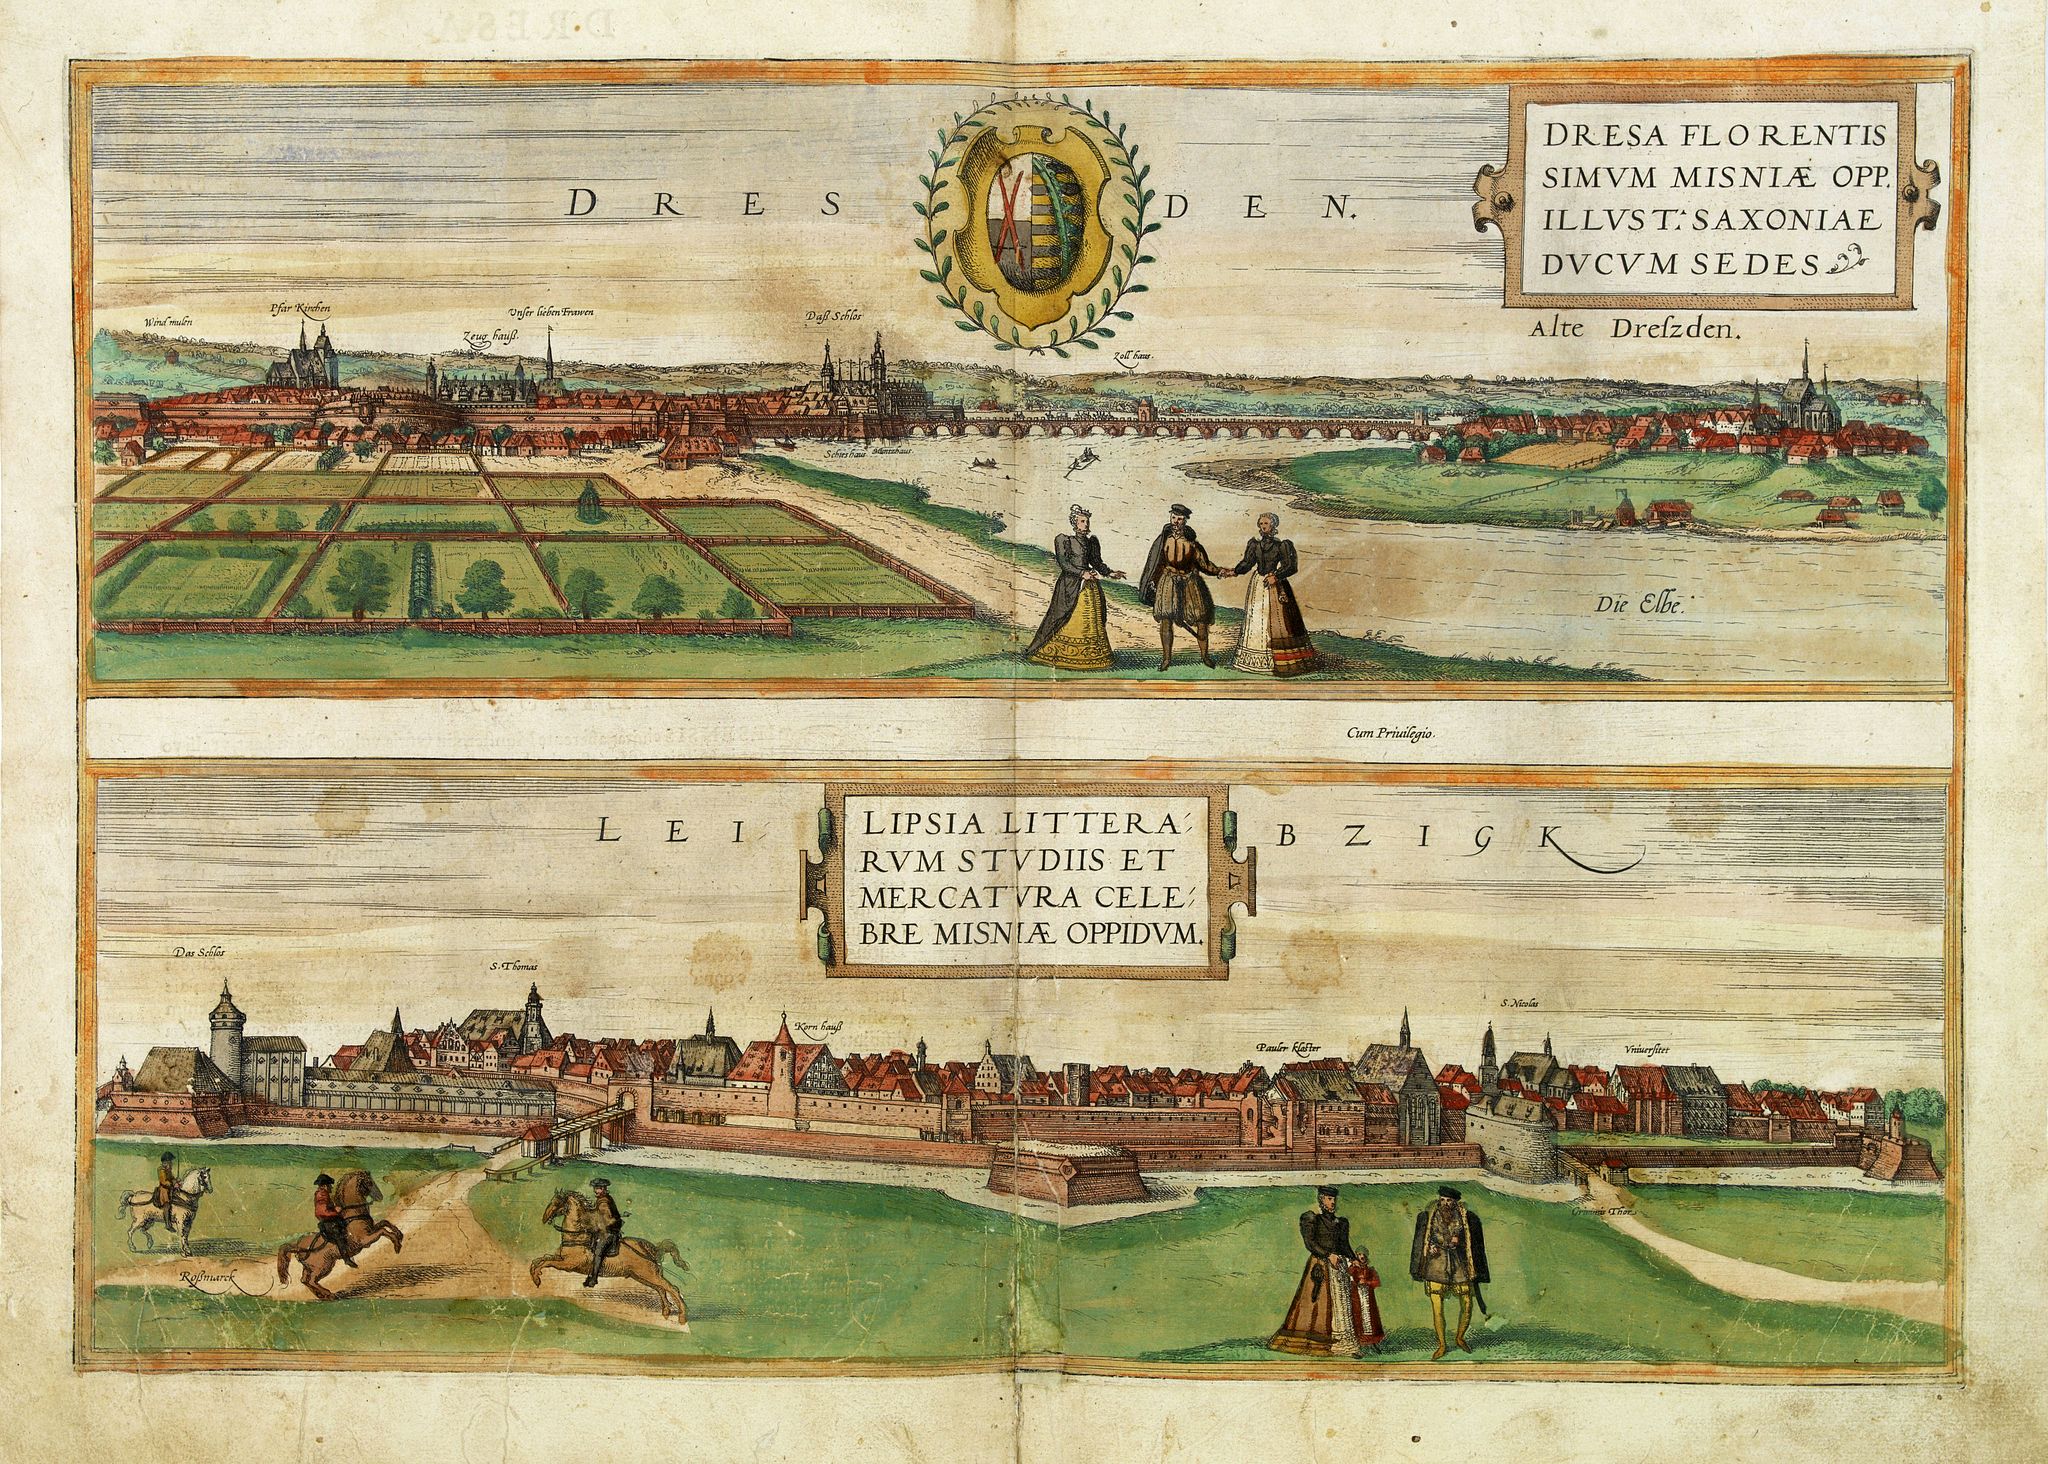 DRESDEN.
DRESA FLORENTIS
SIMVM MISNIÆ OPP.
ILLVST: SAXONIAE
DVCVM SEDES
Alte Dreſzden.
Wind mulen
Pfar Kirchen
Zeug hauß.
Vnſer lieben Frawen
Daß Schlos
Zoll haus.
Schieshaus
Die Elbe.
Cum Priuilegio.
LEIBZIGK
LIPSIA LITTERA-
RVM STVDIIS ET
MERCATVRA CELE-
BRE MISNIÆ OPPIDVM.
Das Schlos
S. Thomas
Korn hauß
Pauler kloſter
S. Nicolas
Vniuerſitet
Grimmiſ Thor
Roßmarck